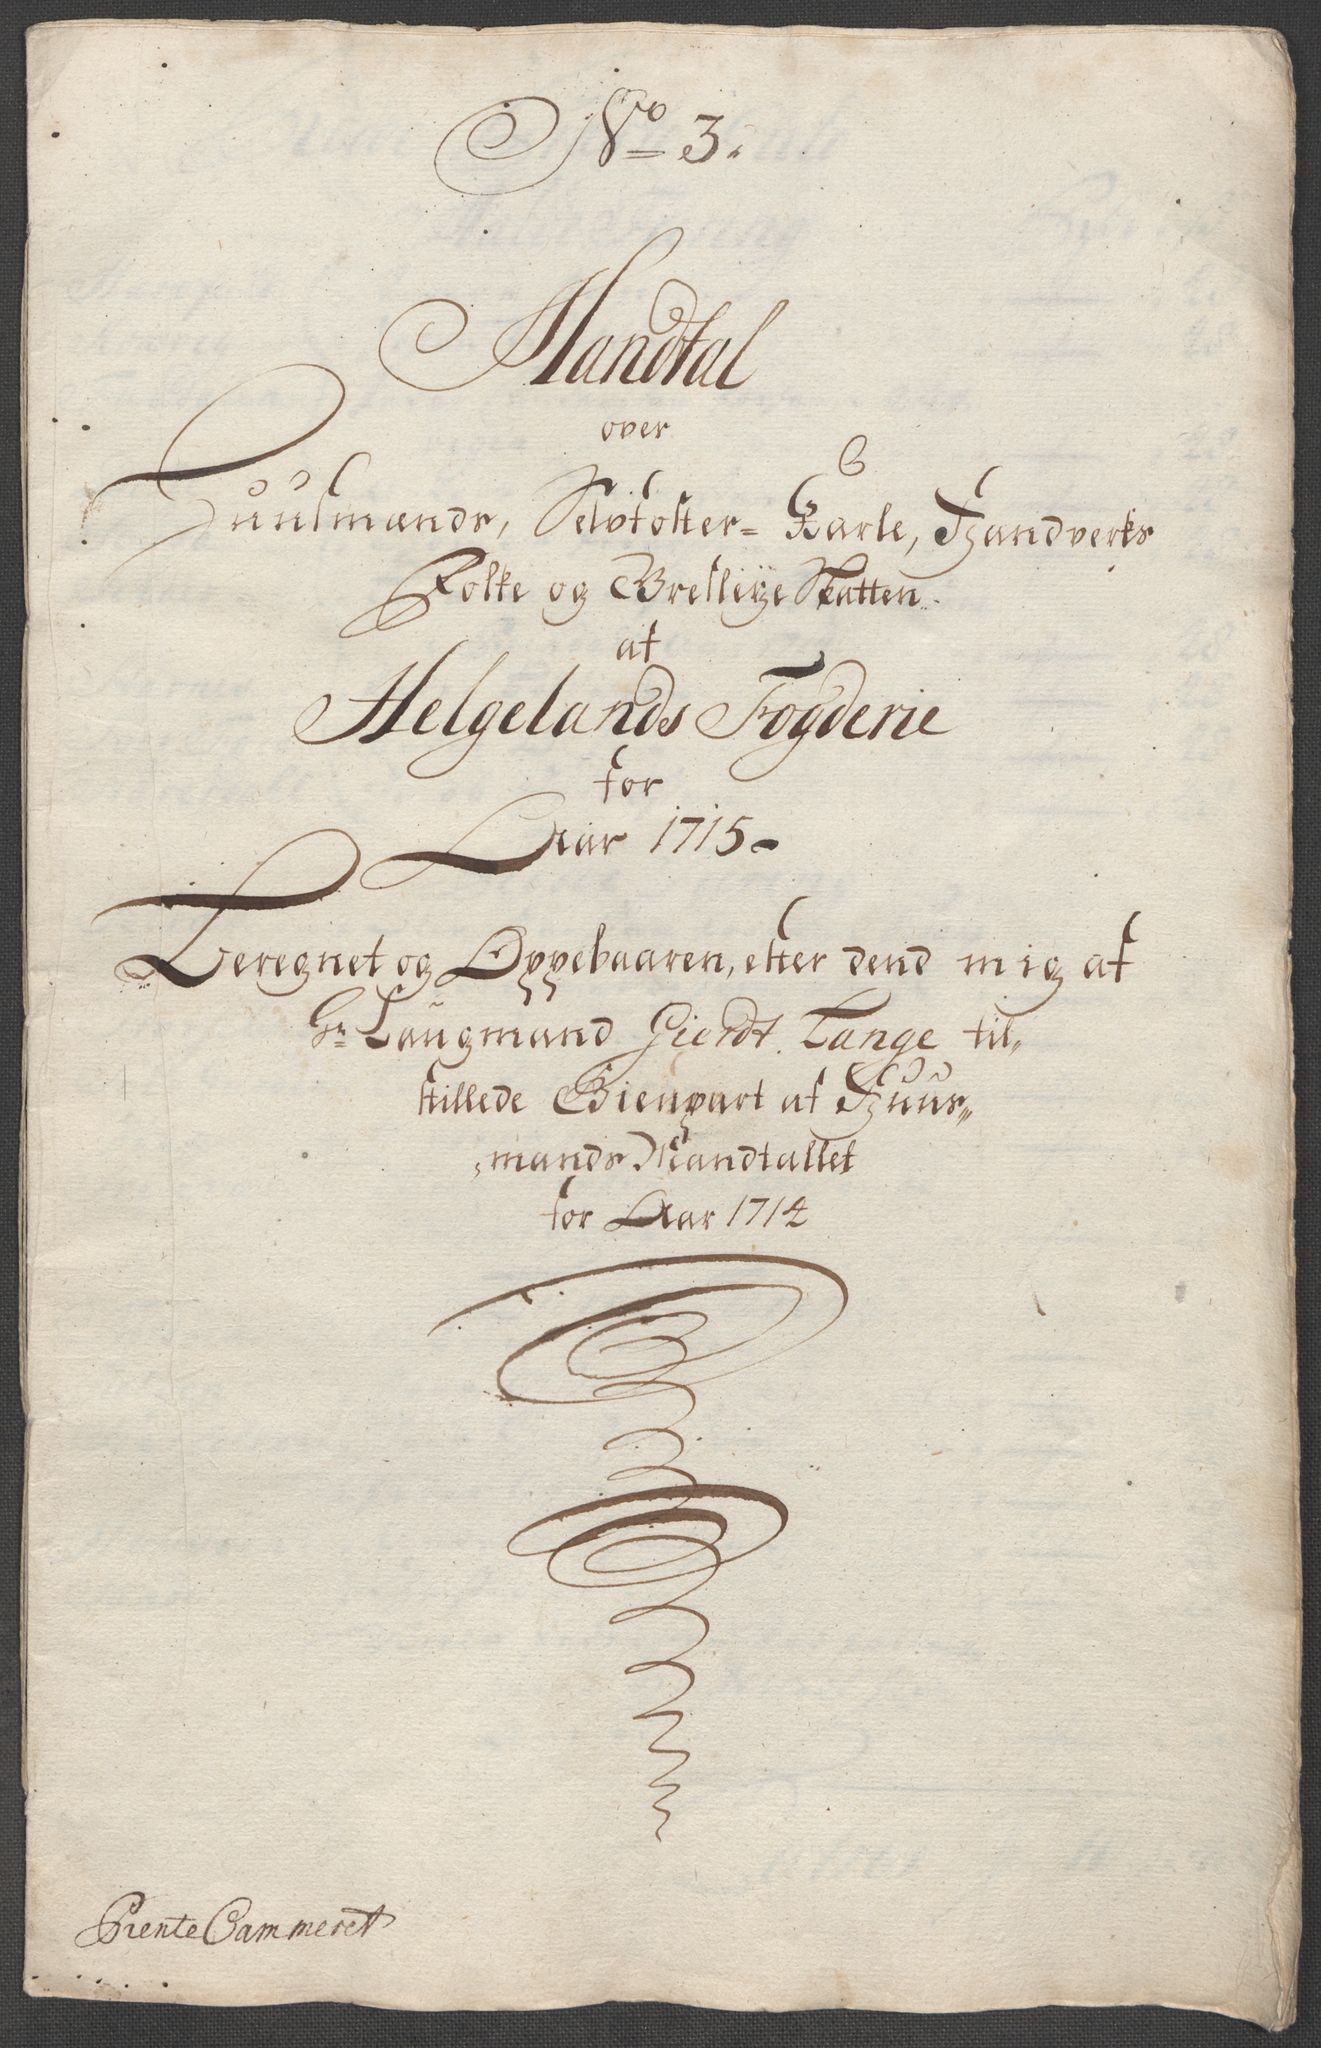 No 3.
Mandtal
over
Huusmænds, Selvfoster-Karle, Handverks
Folke og Grelleye Skatten
af
Helgelands Fogderie
for
Aar 1715.
Beregnet og Oppebaaren, efter dend mig af
Hr Laugmand Gierdt Lange til„
stillede Gienpart af Huus„
„mands Mandtallet
for Aar 1714
Rente Cammeret